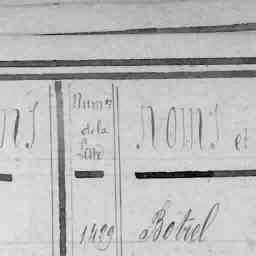 Num^s
de la
Liste
NOMS et
1429 Botrel